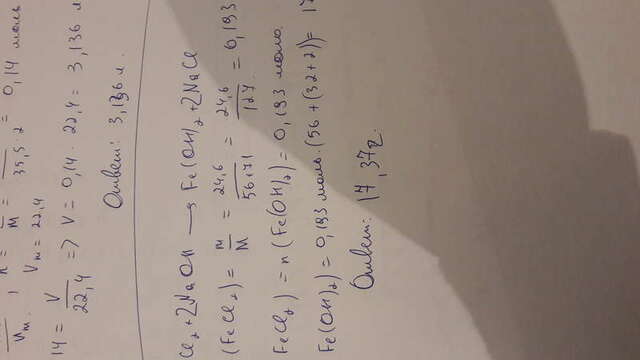 n = m/M = /35,5·2 = 0,14 моль
V/Vm. Vm = 22,4
14 = V/22,4 => V = 0,14 · 22,4 = 3,136 л
Ответ: 3,136 л.
Cl₂ + 2NaOH → Fe(OH)₂ + 2NaCl
(FeCl₂) = m/M = 24,6/56+71 = 24,6/127 = 0,193
FeCl₂) = n(Fe(OH)₂) = 0,193 моль.
Fe(OH)₂) = 0,193 моль · (56 + (32+2)) = 17
Ответ: 17,37г.